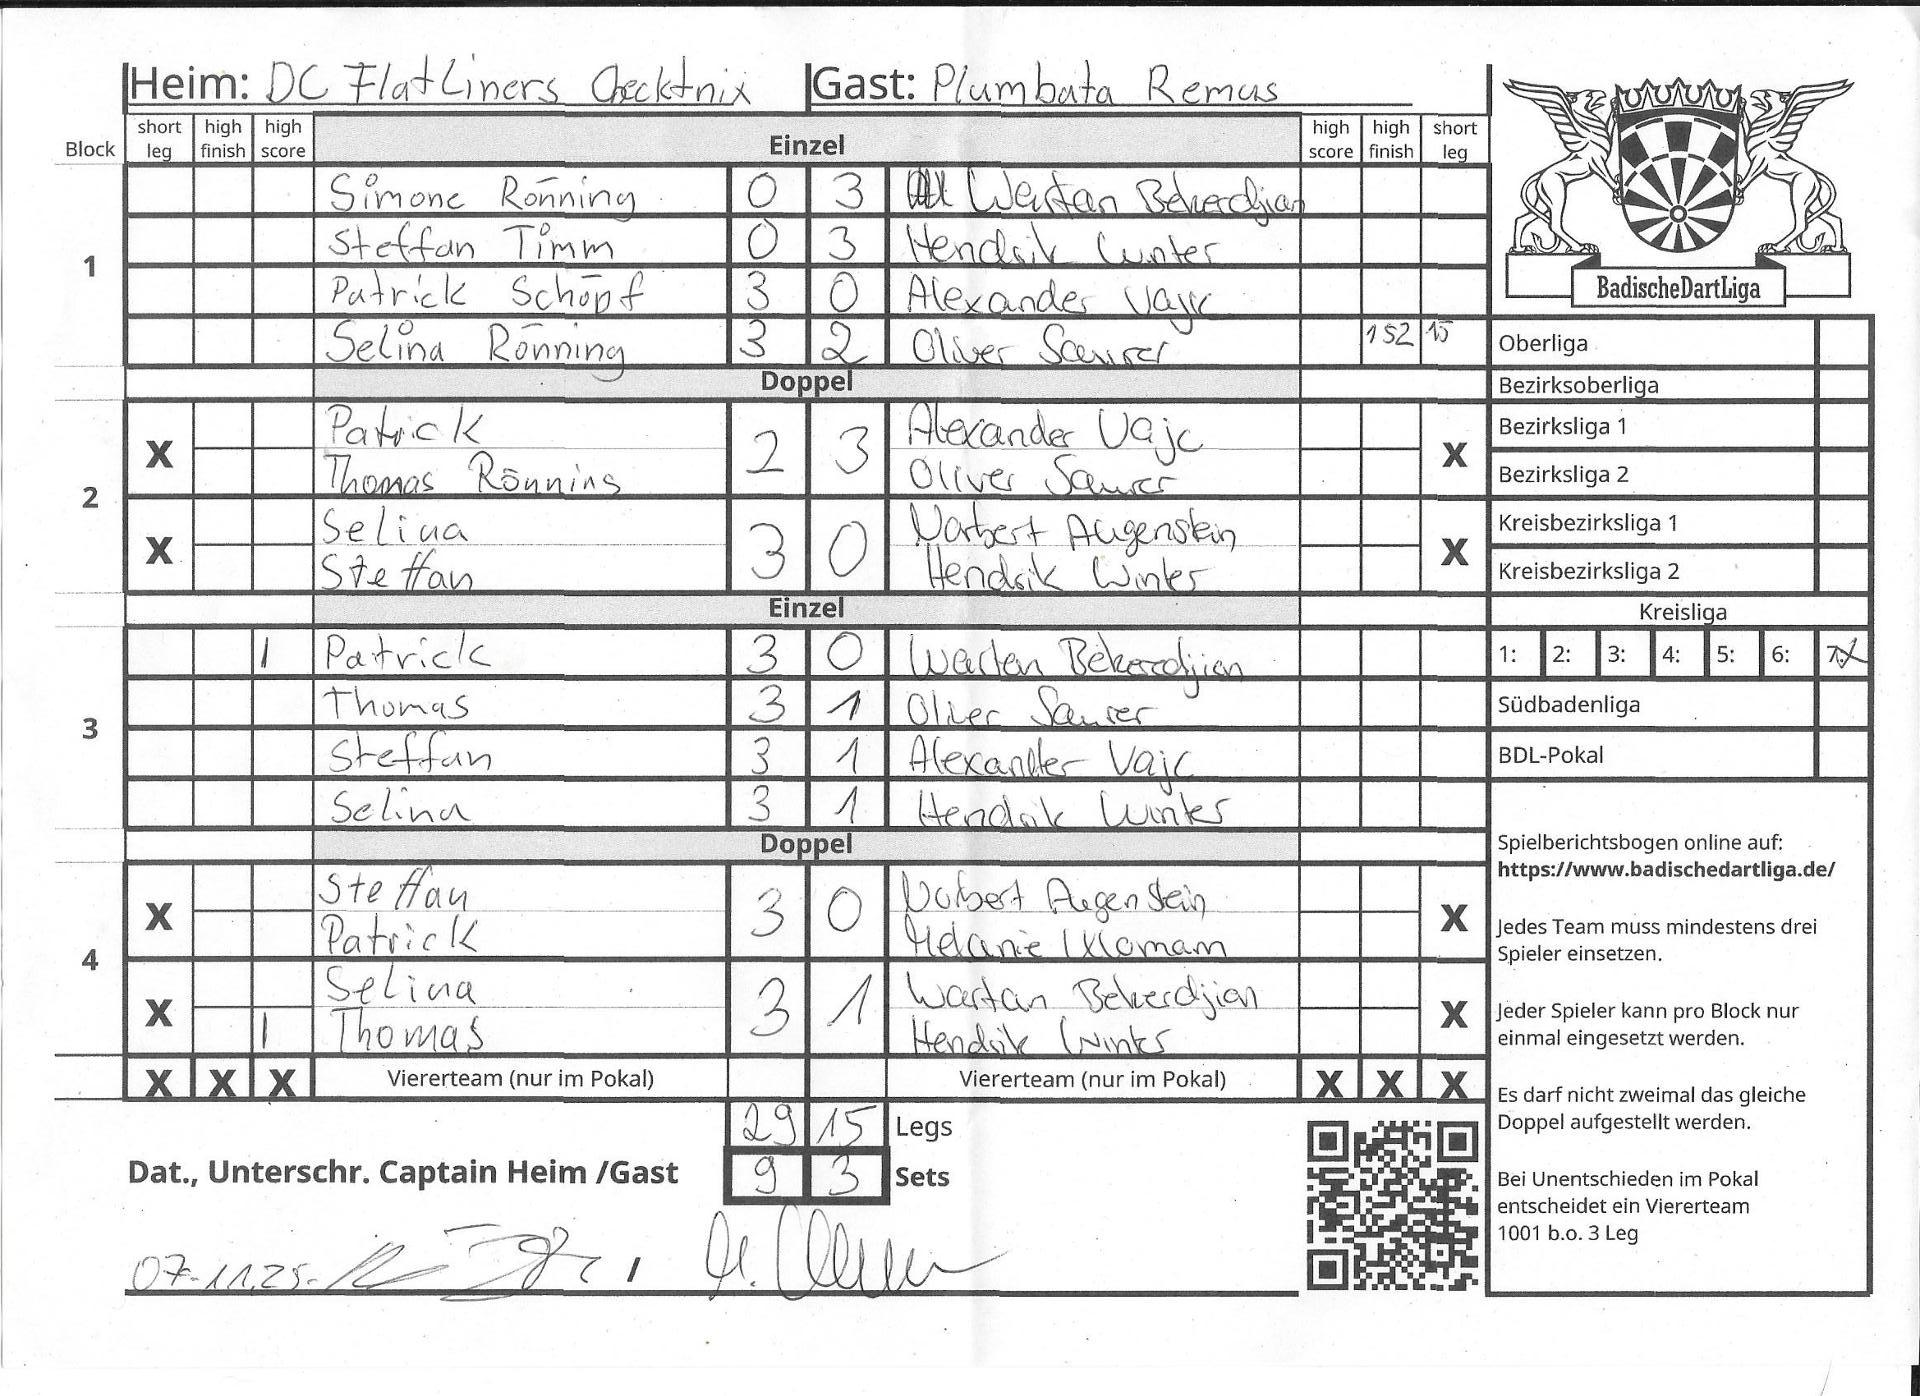 Heim: DC FlatLiners Checktnix Gast: Plumbata Remus
Block short leg high finish high score Einzel high score high finish short leg
1
Simone Rönning 0 3 Wartan Bekerdjian
Steffan Timm 0 3 Hendrik Winter
Patrick Schöpf 3 0 Alexander Vajc
Selina Rönning 3 2 Oliver Saurer 152 15
Doppel
2
X Patrick 2 3 Alexander Vajc X
Thomas Rönning Oliver Saurer
X Selina 3 0 Norbert Augenstein X
Steffan Hendrik Winter
Einzel
3
1 Patrick 3 0 Wartan Bekerdjian
Thomas 3 1 Oliver Saurer
Steffan 3 1 Alexander Vajc
Selina 3 1 Hendrik Winter
Doppel
4
X Steffan 3 0 Norbert Augenstein X
Patrick Melanie
X Selina 3 1 Wartan Bekerdjian X
1 Thomas Hendrik Winter
X X X Viererteam (nur im Pokal) Viererteam (nur im Pokal) X X X
29 15 Legs
Dat., Unterschr. Captain Heim /Gast 9 3 Sets
07.11.25. /
BadischeDartLiga
Oberliga
Bezirksoberliga
Bezirksliga 1
Bezirksliga 2
Kreisbezirksliga 1
Kreisbezirksliga 2
Kreisliga
1: 2: 3: 4: 5: 6: 7: X
Südbadenliga
BDL-Pokal
Spielberichtsbogen online auf:
https://www.badischedartliga.de/
Jedes Team muss mindestens drei
Spieler einsetzen.
Jeder Spieler kann pro Block nur
einmal eingesetzt werden.
Es darf nicht zweimal das gleiche
Doppel aufgestellt werden.
Bei Unentschieden im Pokal
entscheidet ein Viererteam
1001 b.o. 3 Leg